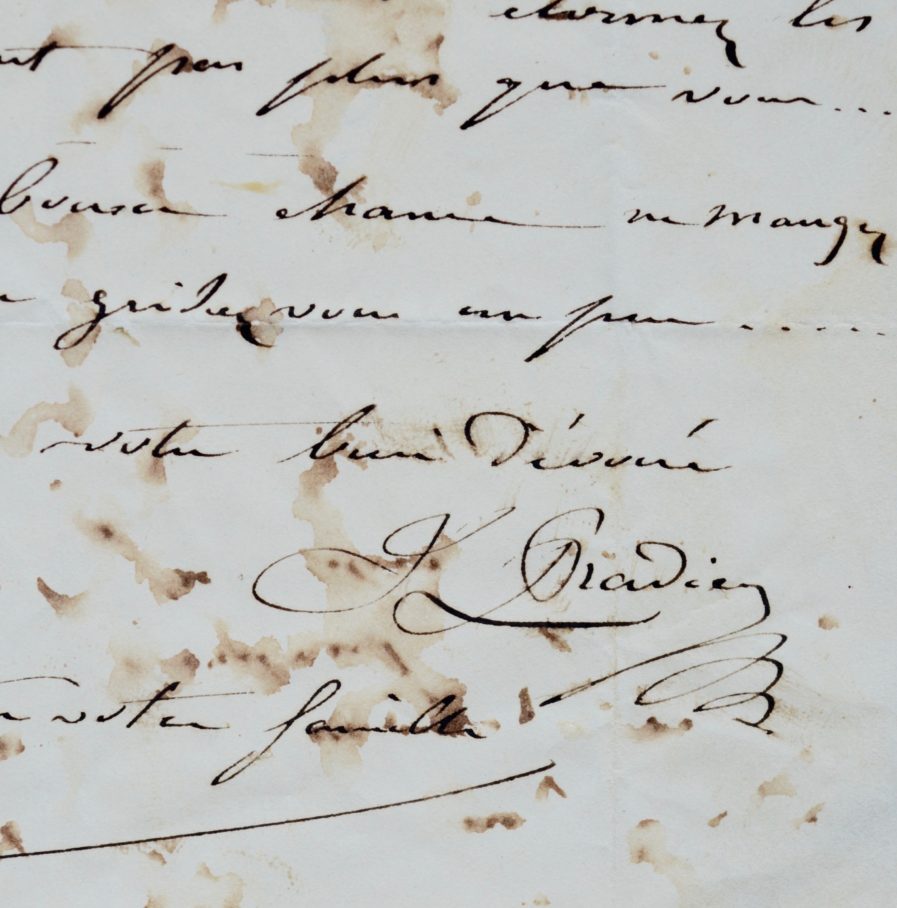 les
pas plus que vous...
bonne chance ne mangez
grisez vous un peu .....
votre bien dévoué
J Pradier
votre famille